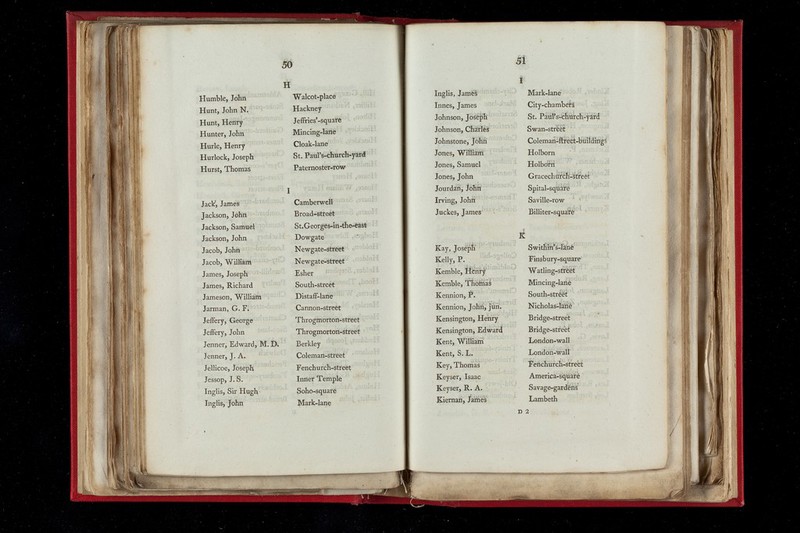 50
H
Humble, John Walcot-place
Hunt, John N. Hackney
Hunt, Henry Jeffries'-square
Hunter, John Mincing-lane
Hurle, Henry Cloak-lane
Hurlock, Joseph St. Paul's-church-yard
Hurst, Thomas Paternoster-row
I
Jack, James Camberwell
Jackson, John Broad-street
Jackson, Samuel St.Georges-in-the-east
Jackson, John Dowgate
Jacob, John Newgate-street
Jacob, William Newgate-street
James, Joseph Esher
James, Richard South-street
Jameson, William Distaff-lane
Jarman, G. F. Cannon-street
Jeffery, George Throgmorton-street
Jeffery, John Throgmorton-street
Jenner, Edward, M. D. Berkley
Jenner, J. A. Coleman-street
Jellicoe, Joseph Fenchurch-street
Jessop, J. S. Inner Temple
Inglis, Sir Hugh Soho-square
Inglis, John Mark-lane
51
I
Inglis, James Mark-lane
Innes, James City-chambers
Johnson, Joseph St. Paul's-church-yard
Johnson, Charles Swan-street
Johnstone, John Coleman-street-buildings
Jones, William Holborn
Jones, Samuel Holborn
Jones, John Gracechurch-street
Jourdan, John Spital-square
Irving, John Saville-row
Juckes, James Billiter-square
K
Kay, Joseph Swithin's-lane
Kelly, P. Finsbury-square
Kemble, Henry Watling-street
Kemble, Thomas Mincing-lane
Kennion, P. South-street
Kennion, John, jun. Nicholas-lane
Kensington, Henry Bridge-street
Kensington, Edward Bridge-street
Kent, William London-wall
Kent, S. L. London-wall
Key, Thomas Fenchurch-street
Keyser, Isaac America-square
Keyser, R. A. Savage-gardens
Kiernan, James Lambeth
D 2